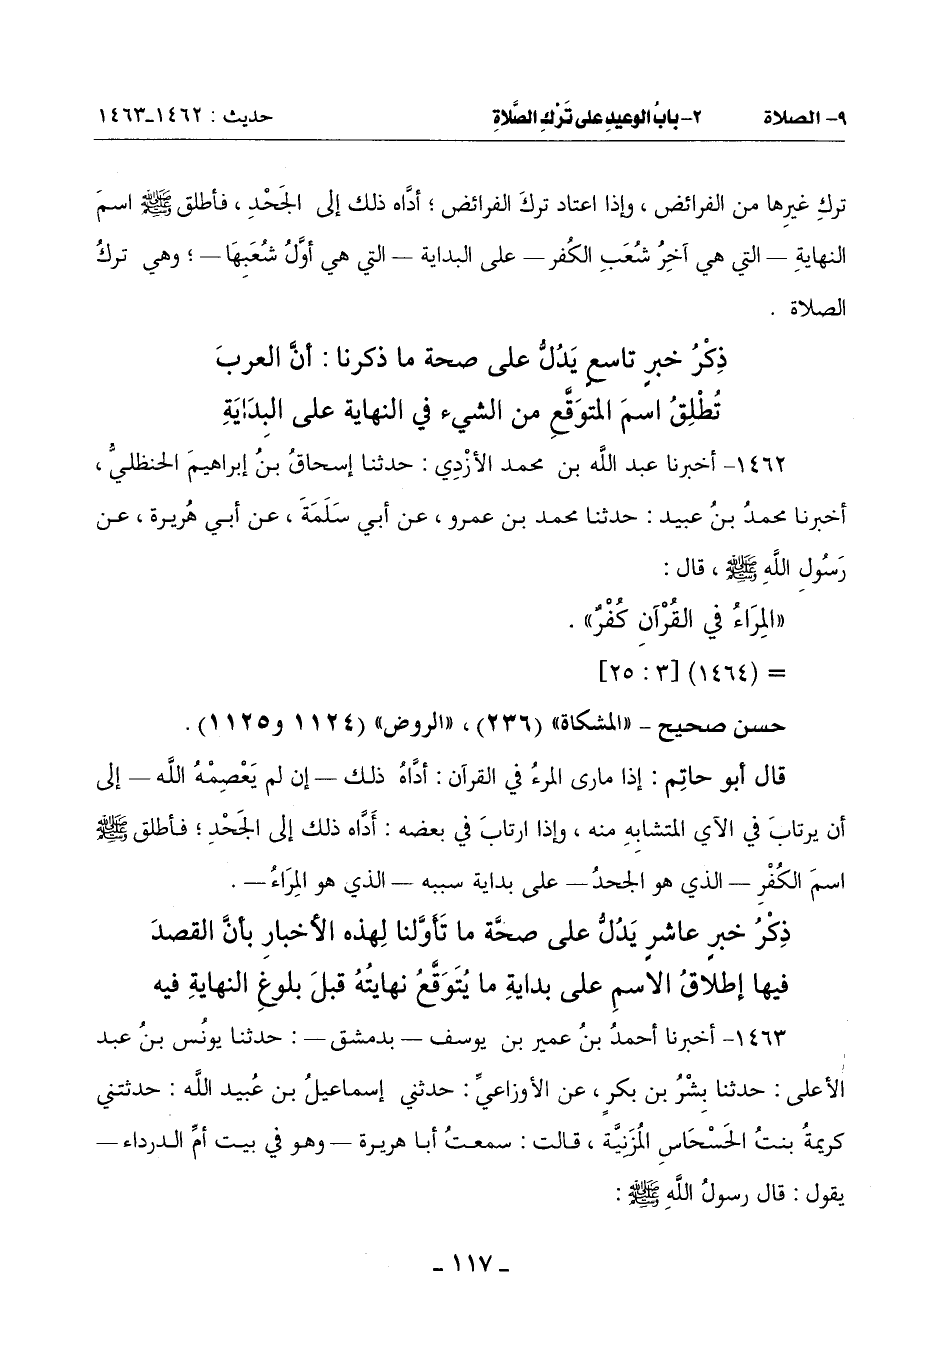 ٩- الصلاة ٢- بابُ الوعيدِ على تَرْكِ الصَّلاةِ حديث : ١٤٦٢-١٤٦٣
تركِ غيرِها من الفرائض ، وإذا اعتاد تركَ الفرائض ؛ أدَّاه ذلك إلى الجَحْدِ ، فأطلق ﷺ اسمَ
النهايةِ — التي هي آخِرُ شُعَبِ الكُفر — على البداية — التي هي أوَّلُ شُعَبِهَا — ؛ وهي تركُ
الصلاة .
ذِكْرُ خبرٍ تاسعٍ يَدُلُّ على صحة ما ذكرنا : أنَّ العربَ
تُطْلِقُ اسمَ المتوَقَّعِ من الشيء في النهاية على البِدَايَةِ
١٤٦٢- أخبرنا عبد اللَّه بن محمد الأزْدِي : حدثنا إسحاقُ بنُ إبراهيمَ الحنظليُّ ،
أخبرنا محمدُ بنُ عبيد : حدثنا محمد بن عمرو ، عن أبي سَلَمَةَ ، عن أبي هُريرة ، عن
رَسُولِ اللَّهِ ﷺ ، قال :
«المِرَاءُ في القُرْآنِ كُفْرٌ» .
= (١٤٦٤) [٣ : ٢٥]
حسن صحيح - «المشكاة» (٢٣٦) ، «الروض» (١١٢٤ و١١٢٥) .
قال أبو حاتِم : إذا مارى المرءُ في القرآن : أدَّاهُ ذلك — إن لم يَعْصِمْهُ اللَّه — إلى
أن يرتابَ في الآي المتشابِهِ منه ، وإذا ارتابَ في بعضه : أَدَّاه ذلك إلى الجَحْدِ ؛ فأطلق ﷺ
اسمَ الكُفْرِ — الذي هو الجحدُ — على بداية سببه — الذي هو المِرَاءُ — .
ذِكْرُ خبرٍ عاشرٍ يَدُلُّ على صحَّة ما تَأوَّلنا لِهذه الأخبار بأنَّ القصدَ
فيها إطلاقُ الاسمِ على بدايةِ ما يُتَوَقَّعُ نهايتُهُ قبلَ بلوغِ النهايةِ فيه
١٤٦٣- أخبرنا أحمدُ بنُ عمير بن يوسف — بدمشق — : حدثنا يونُس بنُ عبد
الأعلى : حدثنا بِشْرُ بن بكرٍ ، عن الأوزاعيِّ : حدثني إسماعيلُ بن عُبيد اللَّه : حدثتني
كريمةُ بنتُ الحَسْحَاسِ المُزَنِيَّة ، قالت : سمعتُ أبا هريرة — وهو في بيت أمِّ الدرداء —
يقول : قال رسولُ اللَّهِ ﷺ :
- ١١٧ -